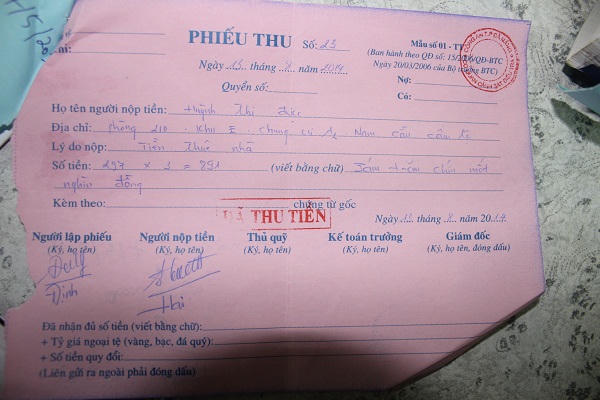 PHIẾU THU Số: 23
Mẫu số 01 - TT
(Ban hành theo QĐ số: 15/2006/QĐ-BTC
Ngày 20/03/2006 của Bộ trưởng BTC)
Ngày 15 tháng năm 2014
Quyển số:
Nợ:
Có:
Họ tên người nộp tiền: Huỳnh Thị
Địa chỉ: Phòng 210 . Khu E . Chung cư Nam cầu cẩm lệ
Lý do nộp: Tiền Thuê nhà
Số tiền: 297 x 3 = 891 (viết bằng chữ) Tám trăm chín mốt
nghìn đồng
Kèm theo: chứng từ gốc
ĐÃ THU TIỀN
Ngày 15 tháng 2014
Người lập phiếu Người nộp tiền Thủ quỹ Kế toán trưởng Giám đốc
(Ký, họ tên) (Ký, họ tên) (Ký, họ tên) (Ký, họ tên) (Ký, họ tên, đóng dấu)
Định Hai
Đã nhận đủ số tiền (viết bằng chữ):
+ Tỷ giá ngoại tệ (vàng, bạc, đá quý):
+ Số tiền quy đổi:
(Liên gửi ra ngoài phải đóng dấu)